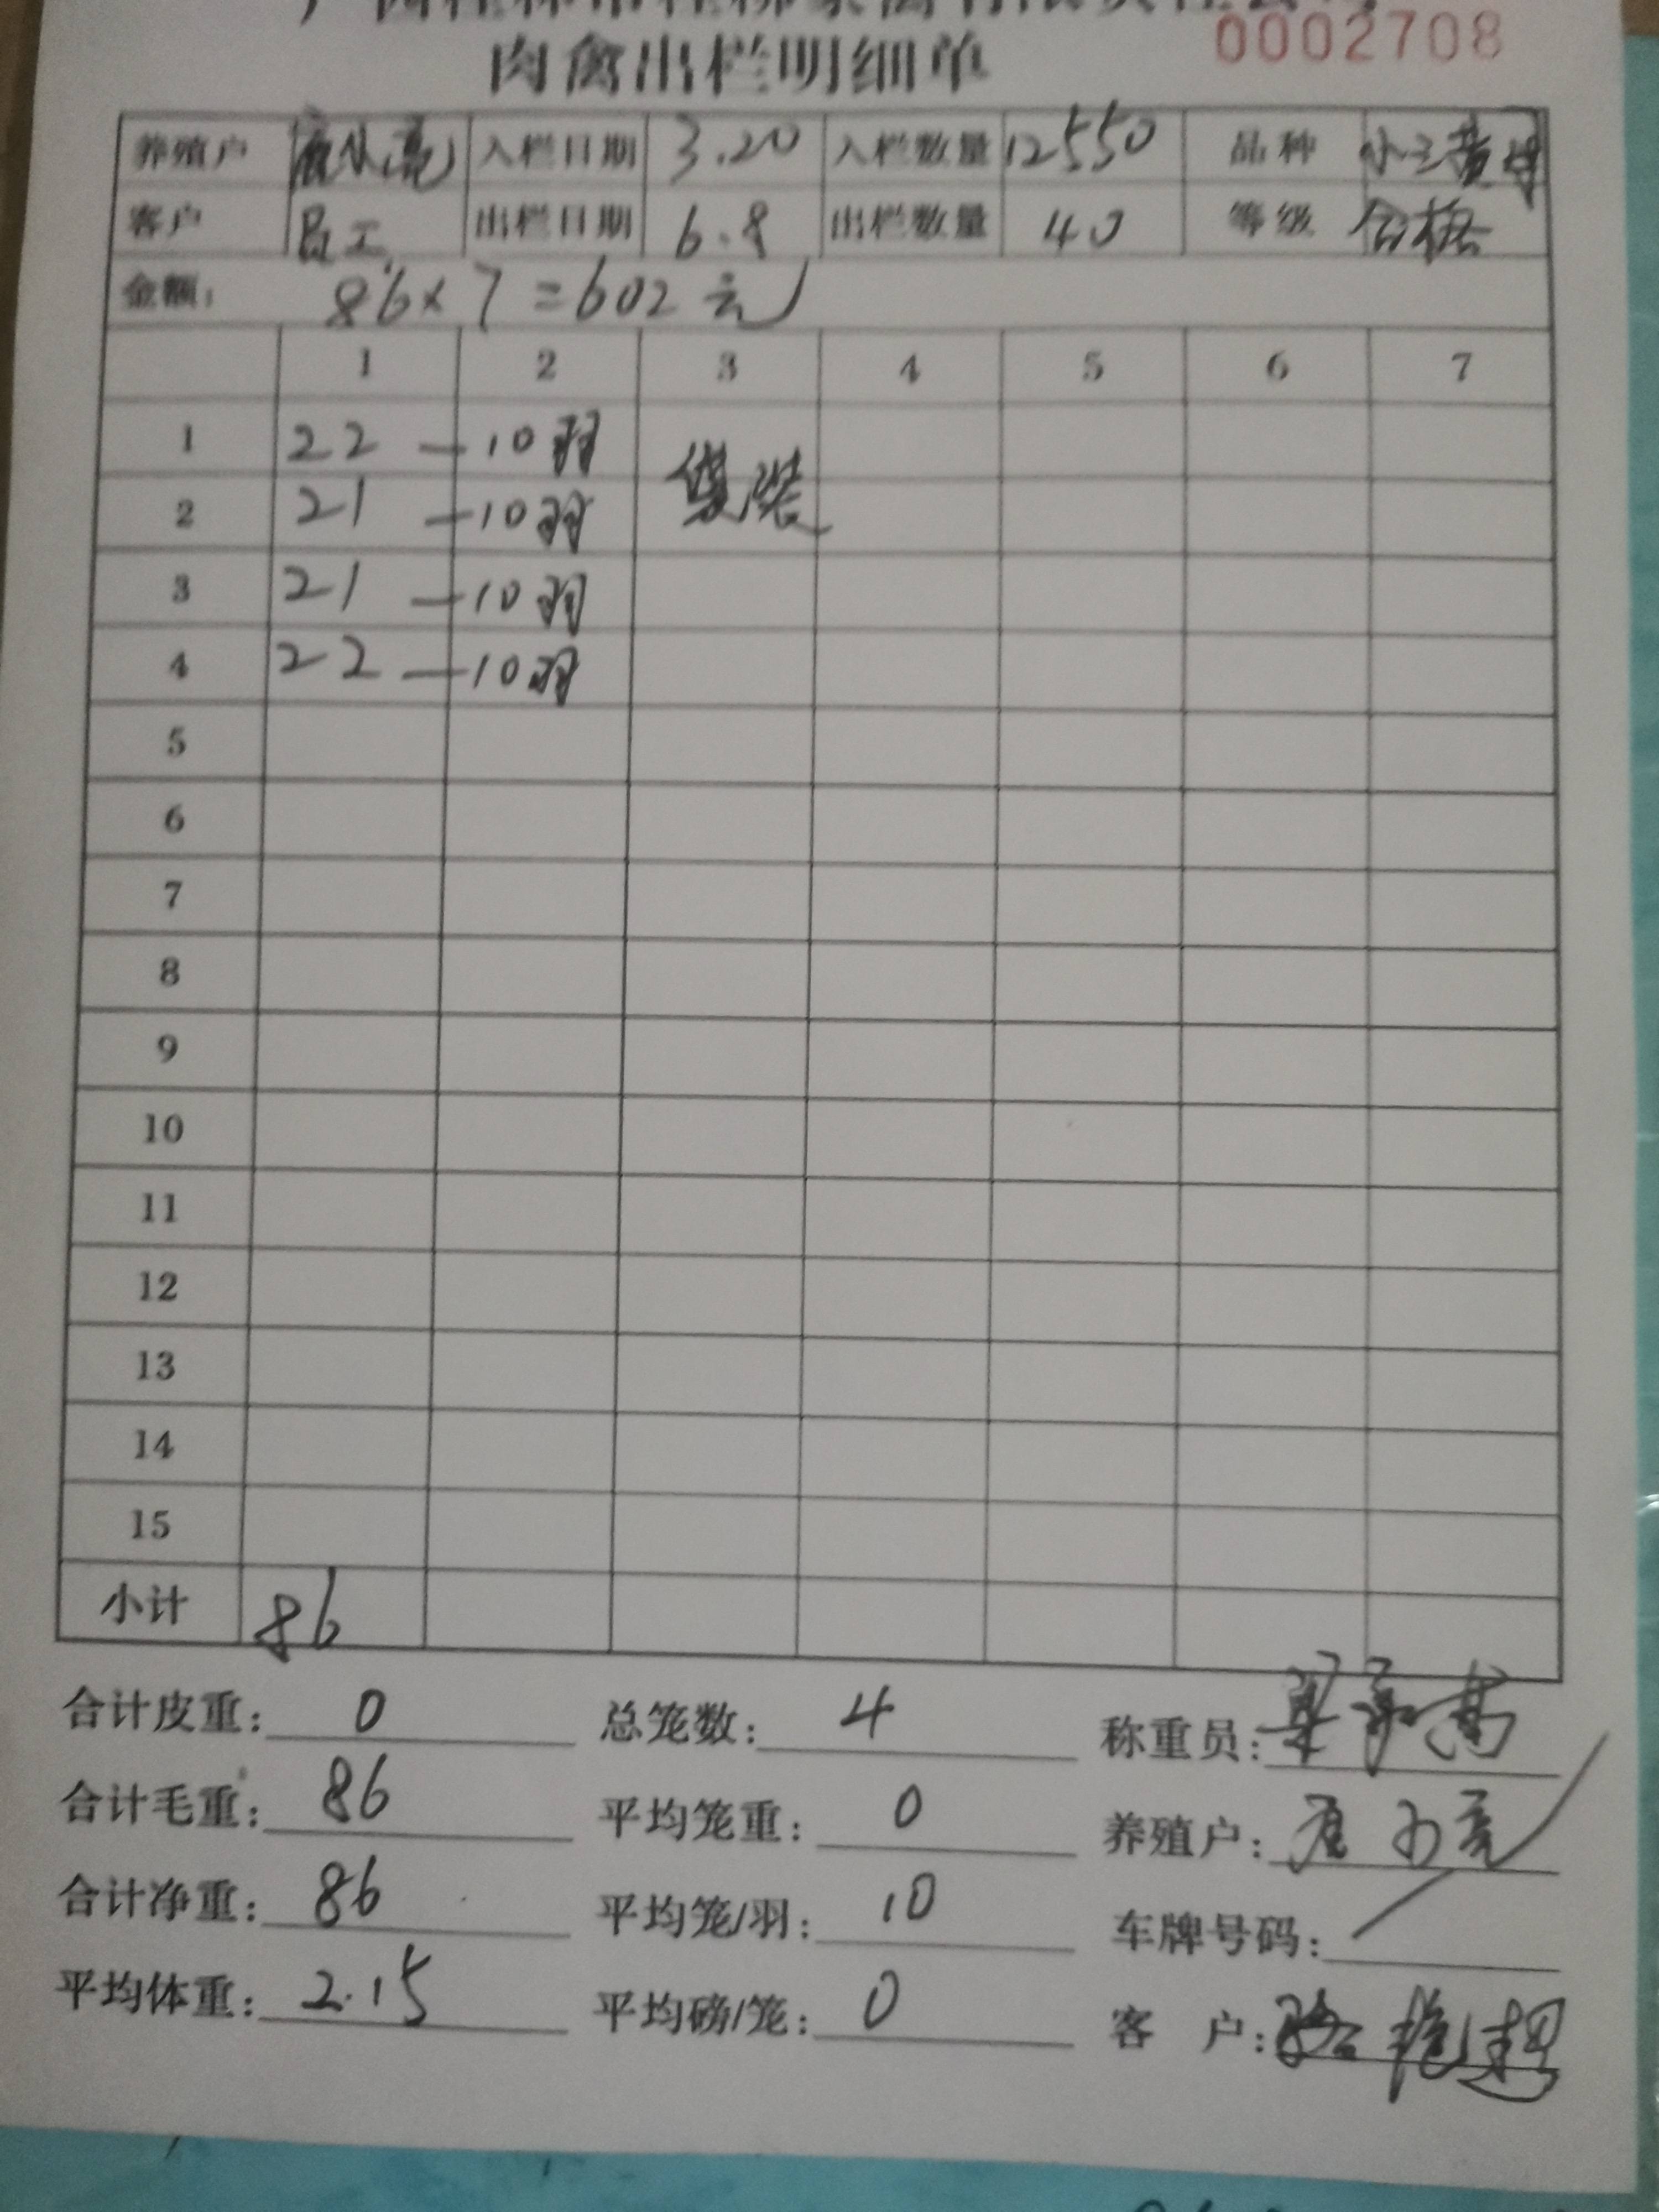 肉禽出栏明细单
0002708
养殖户 入栏日期 3.20 入栏数量 12550 品种
客户 员工 出栏日期 6.8 出栏数量 40 等级 合格
金额: 86×7=602元
1 2 3 4 5 6 7
1 22 —10羽 袋装
2 21 —10羽
3 21 —10羽
4 22 —10羽
5
6
7
8
9
10
11
12
13
14
15
小计 86
合计皮重: 0 总笼数: 4 称重员:
合计毛重: 86 平均笼重: 0 养殖户:
合计净重: 86 平均笼/羽: 10 车牌号码: /
平均体重: 2.15 平均磅/笼: 0 客户: